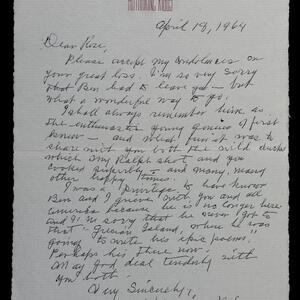 April 18, 1964
Dear Rose,
Please accept my condolences on
your great loss. I'm so very sorry
that Ben had to leave yet — but
what a wonderful way to go.
I shall always remember him as
the enthusiastic young genius I first
knew — and what fun it was to
share with you both the wild ducks
which my Ralph shot, and you
cooked superbly — and many, many
other happy times.
I was a privilege to have known
Ben and I grieve with you and all
America because he is no longer here
and I'm sorry that he never got to
that Grecian Island, where he was
going to write his epic poems.
Perhaps his there now.
My good deal tenderly with
you both.
Very Sincerely,